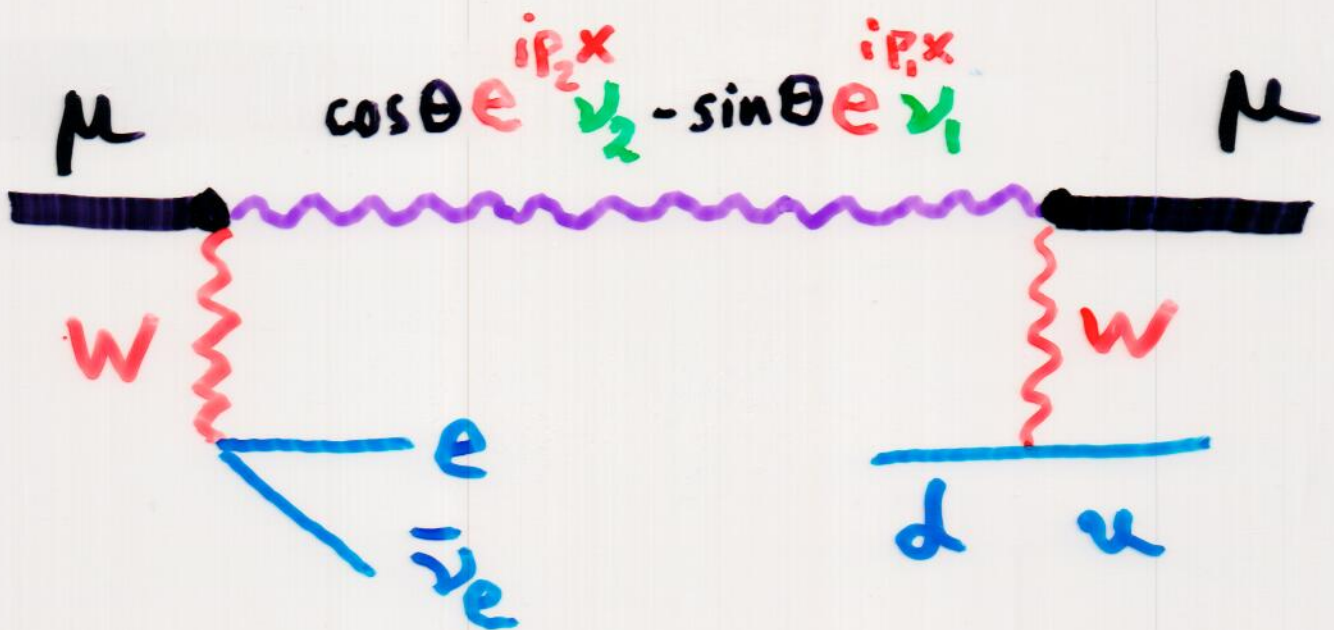 μ cosθ e^{ip₂x} ν₂ - sinθ e^{ip₁x} ν₁ μ
W W
e
ν̄ₑ d u